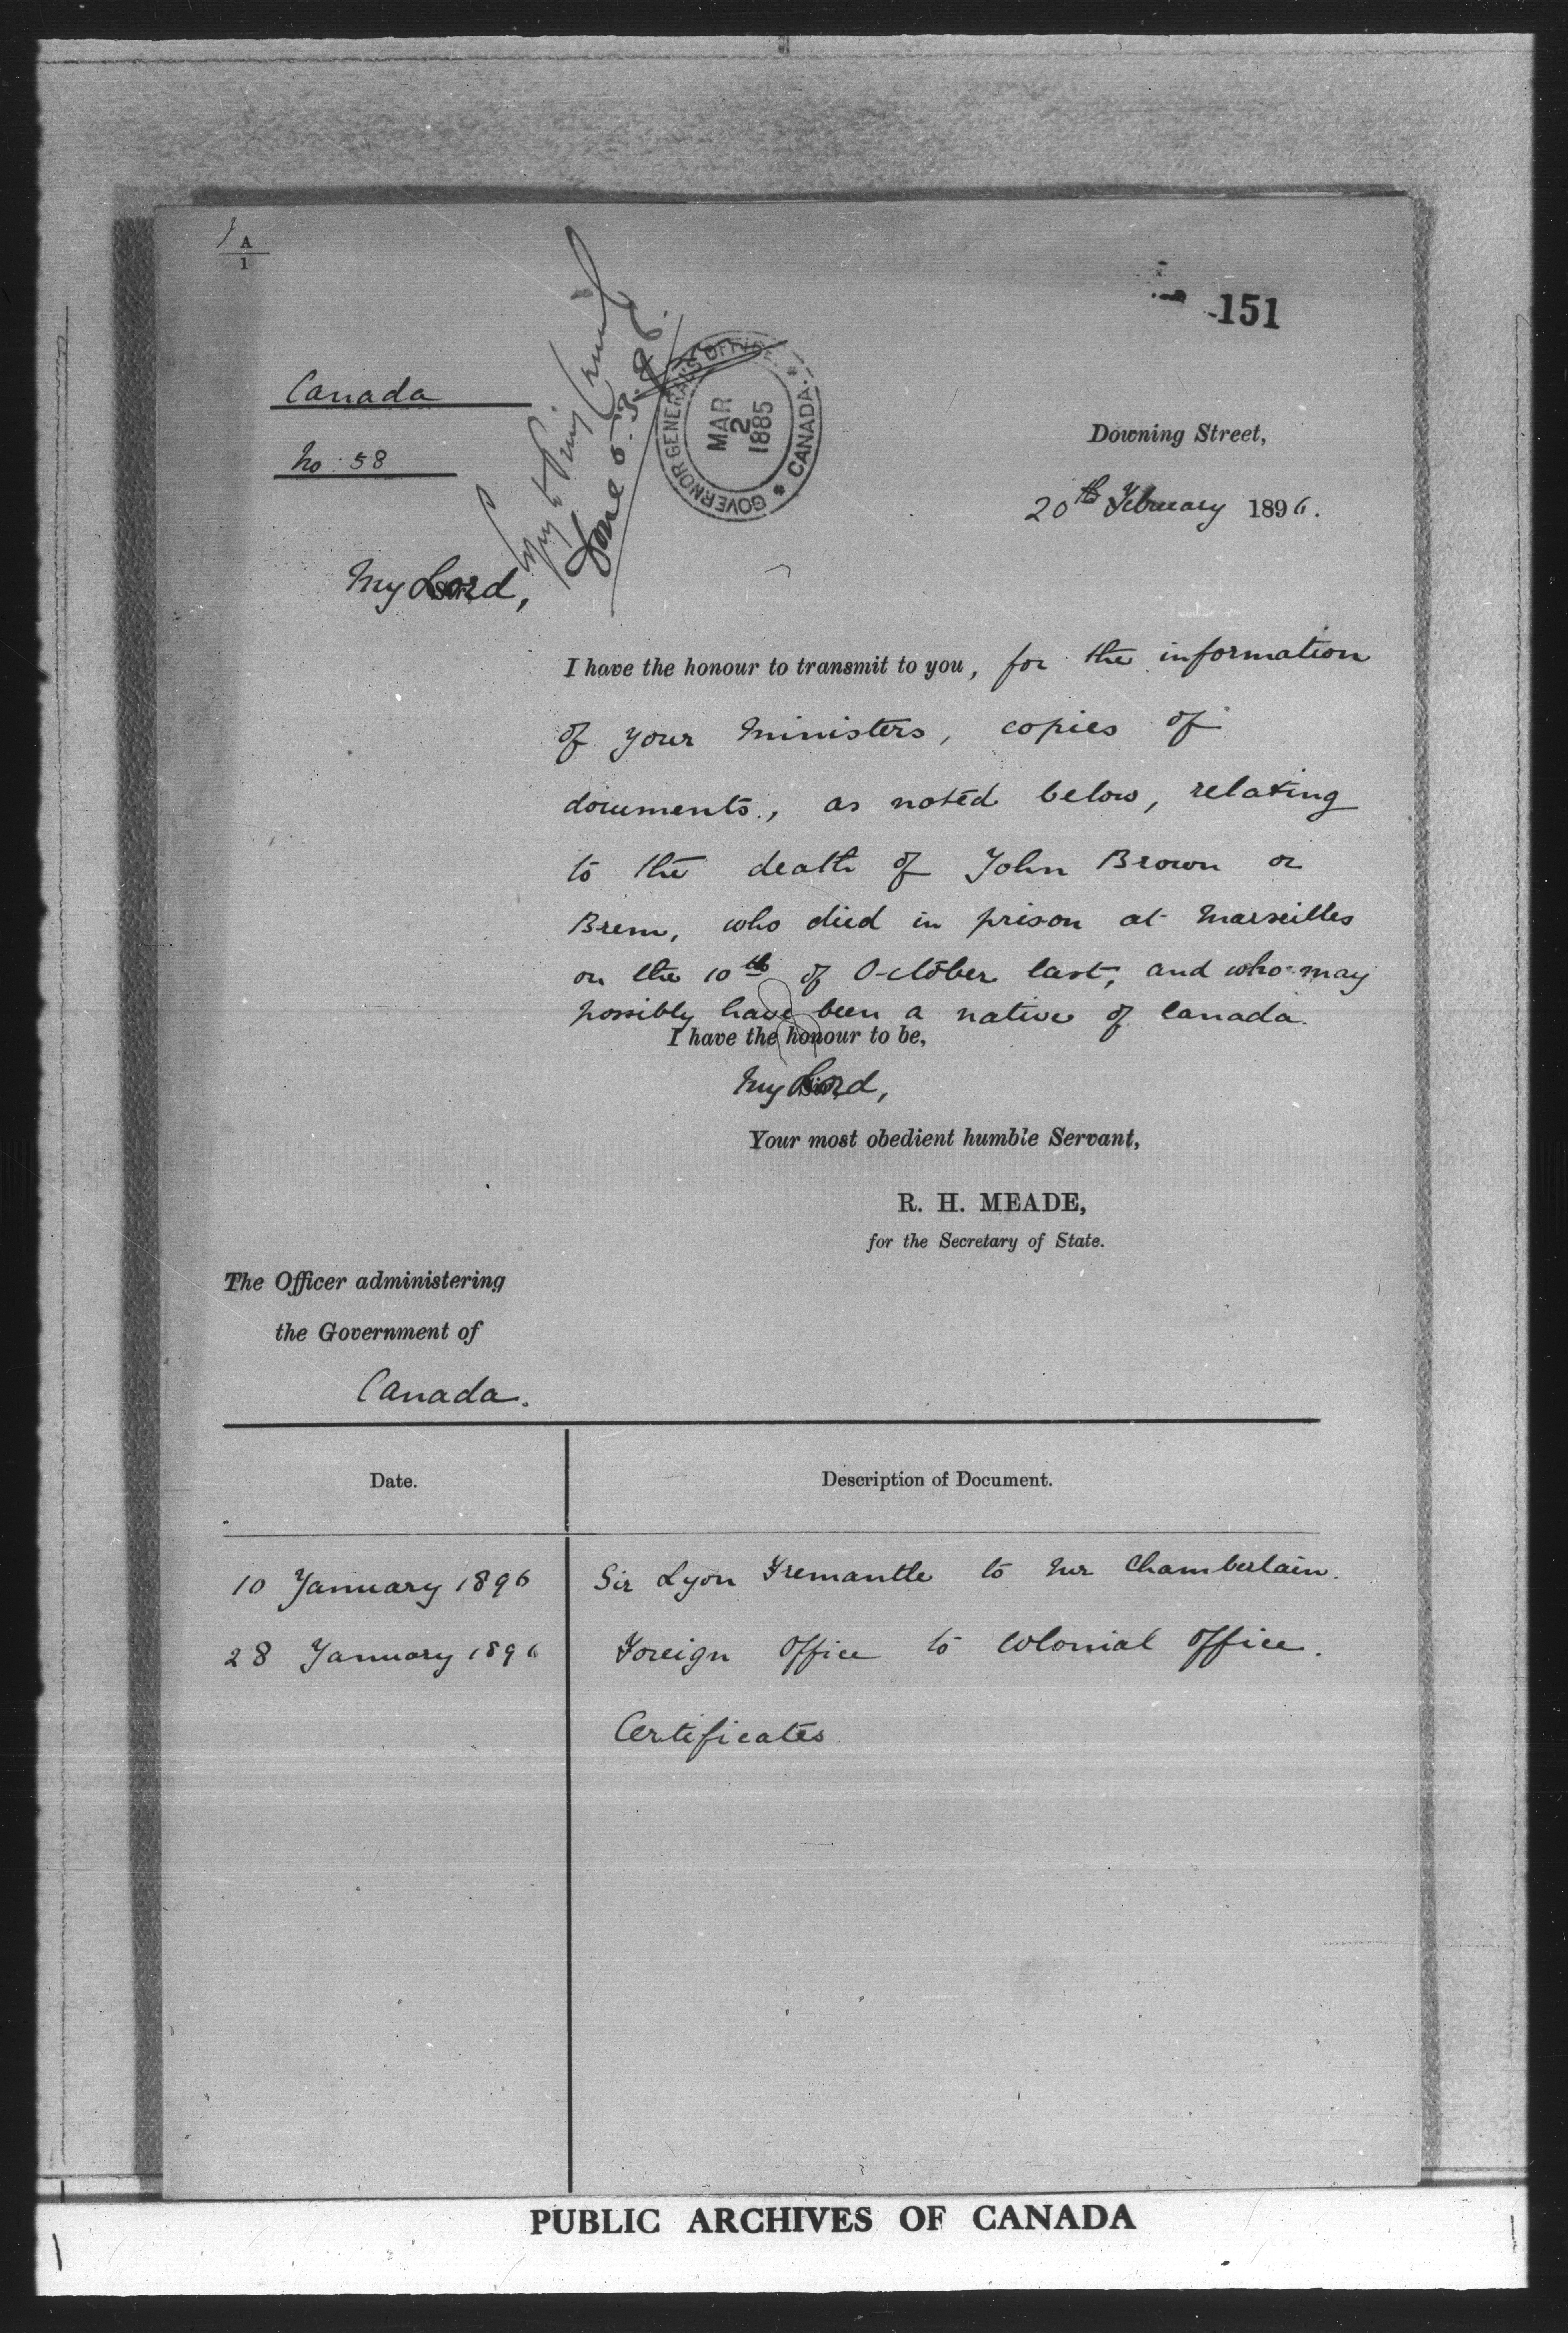 A
1
151
Canada
No: 58
Copy to Privy Council
Done 5.3.96.
GOVERNOR GENERAL'S OFFICE * CANADA *
MAR
2
1885
Downing Street,
20th February 1896.
My Lord,
I have the honour to transmit to you, for the information
of your Ministers, copies of
documents, as noted below, relating
to the death of John Brown or
Brem, who died in prison at Marseilles
on the 10th of October last, and who may
possibly have been a native of Canada.
I have the honour to be,
My Lord,
Your most obedient humble Servant,
R. H. MEADE,
for the Secretary of State.
The Officer administering
the Government of
Canada.
Date. Description of Document.
10 January 1896 Sir Lyon Fremantle to Mr Chamberlain.
28 January 1896 Foreign Office to Colonial Office.
Certificates
PUBLIC ARCHIVES OF CANADA